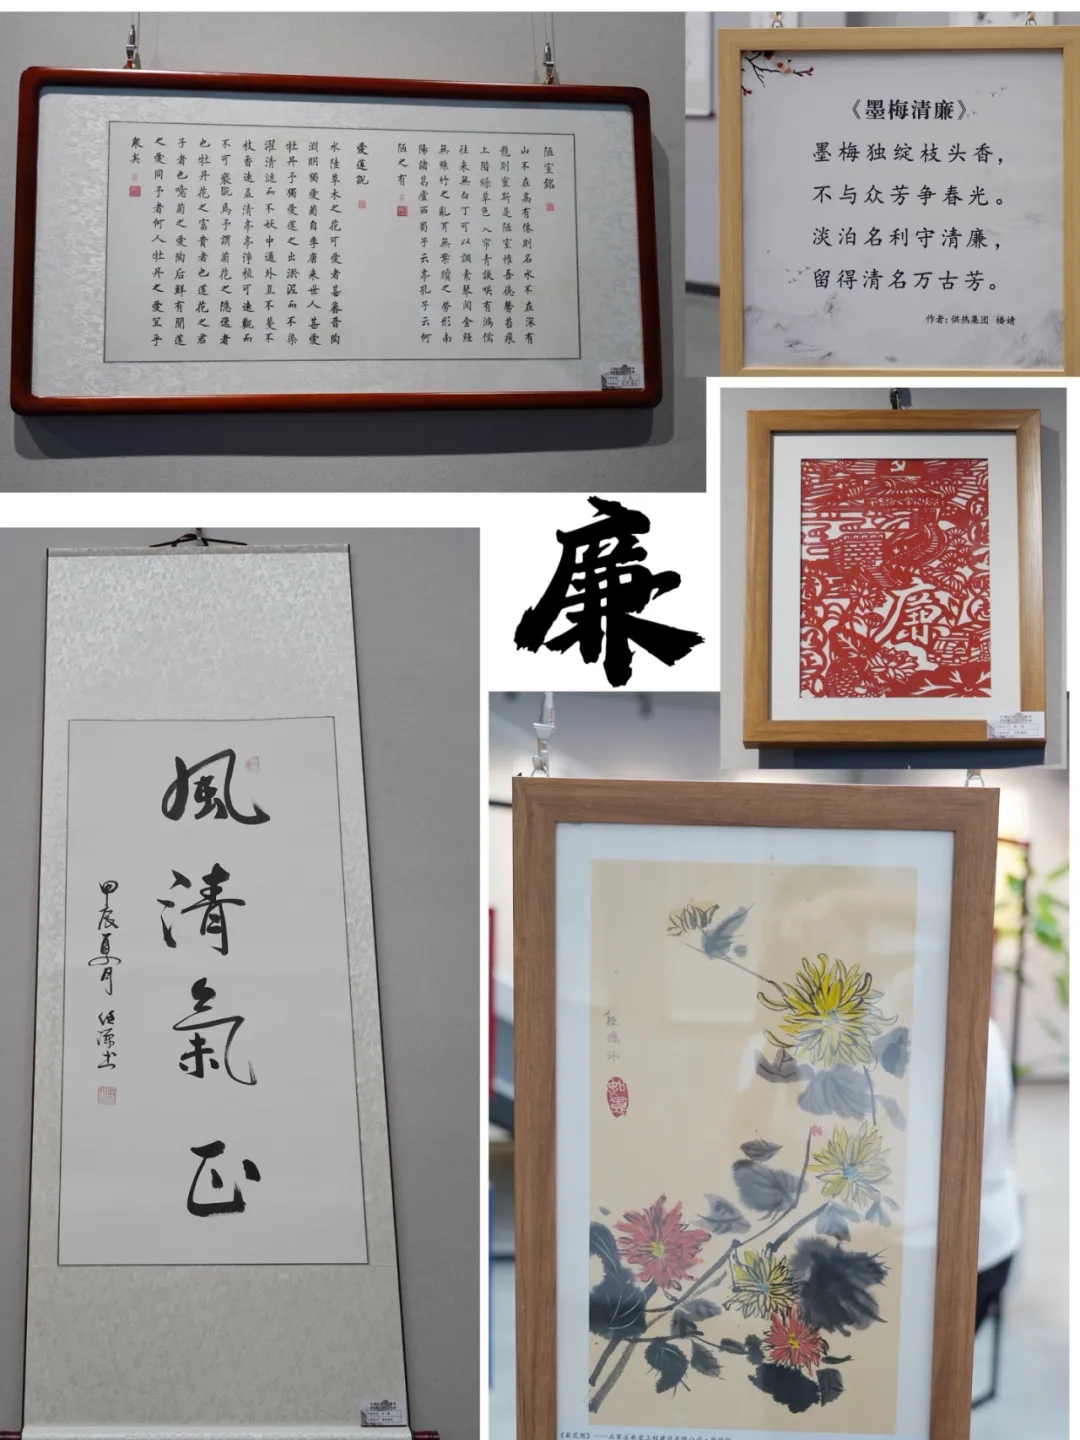 陋室銘
山不在高有僊則名水不在深有
龍則靈斯是陋室惟吾德馨苔痕
上階綠草色入帘青談笑有鴻儒
往來無白丁可以調素琴閱金經
無絲竹之亂耳無案牘之勞形南
陽諸葛廬西蜀子云亭孔子云何
陋之有
愛蓮說
水陸草木之花可愛者甚蕃晉陶
淵明獨愛菊自李唐来世人甚愛
牡丹予獨愛蓮之出淤泥而不染
濯清漣而不妖中通外直不蔓不
枝香遠益清亭亭淨植可遠觀而
不可褻翫焉予謂菊花之隱逸者
也牡丹花之富貴者也蓮花之君
子者也噫菊之愛陶后鮮有聞蓮
之愛同予者何人牡丹之愛宜乎
衆矣
《墨梅清廉》
墨梅独绽枝头香，
不与众芳争春光。
淡泊名利守清廉，
留得清名万古芳。
作者：供热集团 楼婧
廉
廉
風清氣正
甲辰夏月
《菊花图》